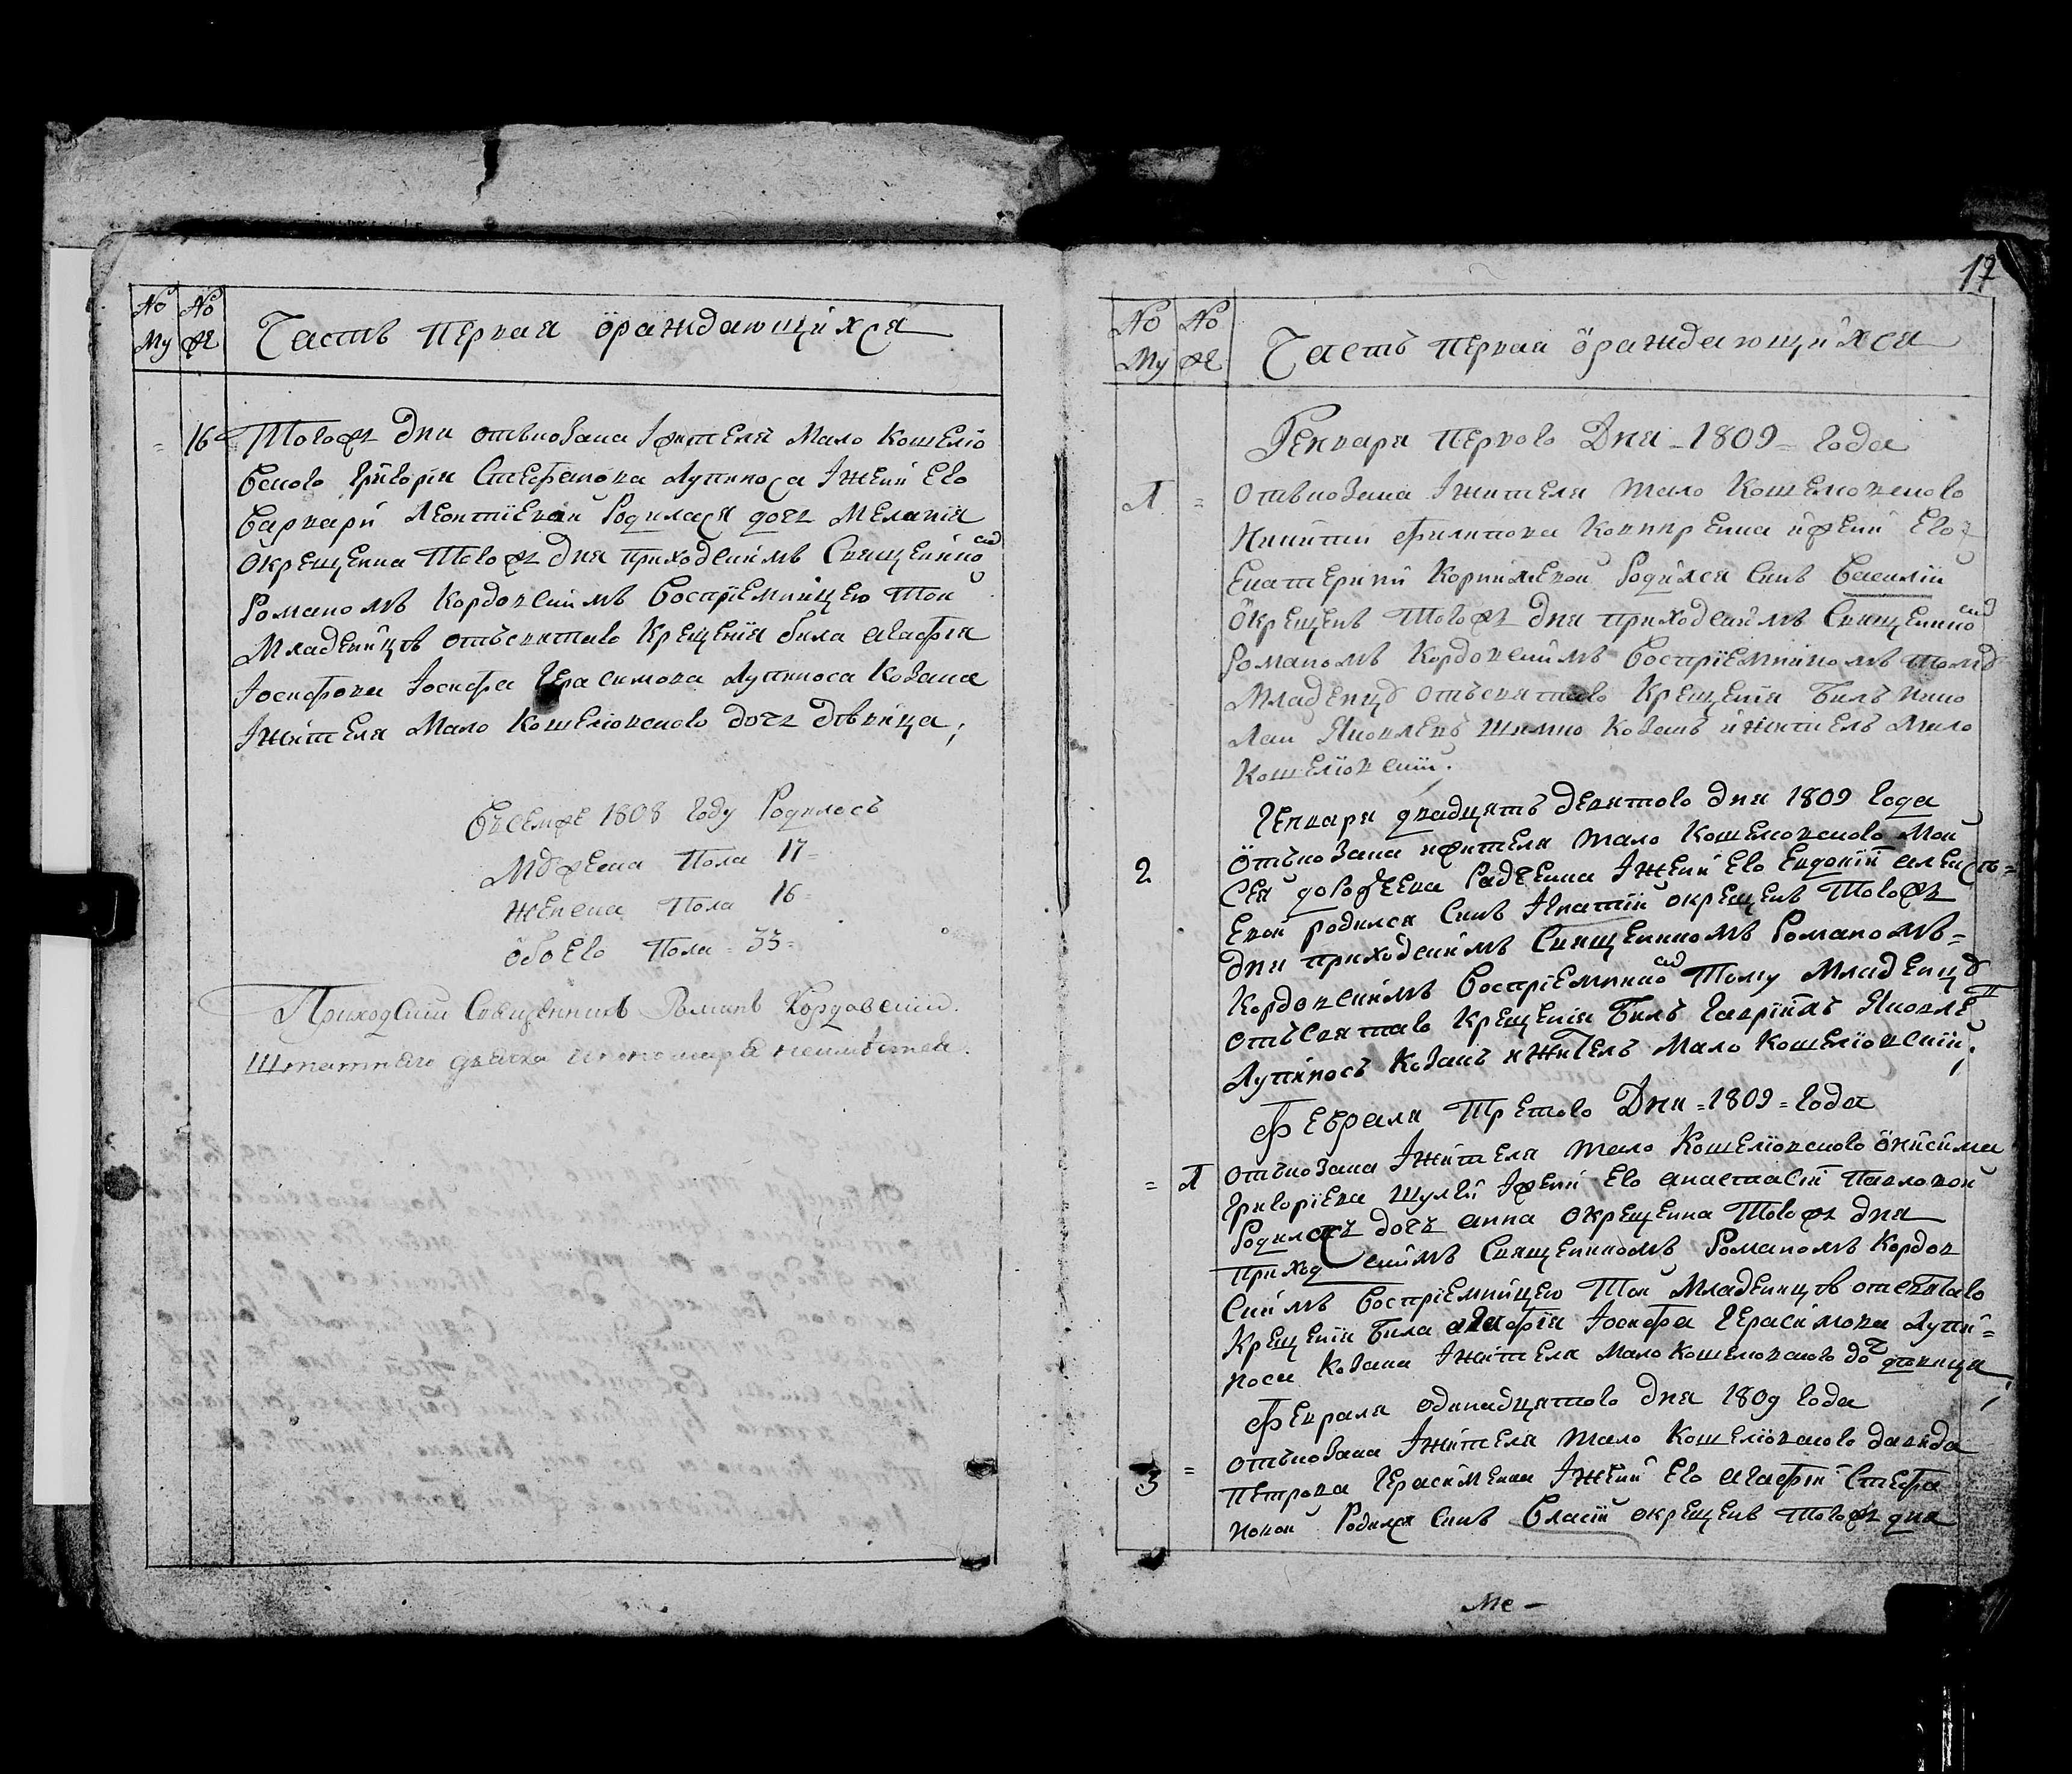 No No
Му Же
Часть Первая ораждающихся
= 16 Тогожъ дни отъкозака Iжителя Мало Кошелю
вского Григорiя Стефанова Лупиноса Iжени Его
Варвари Леонтiевой Родилася дочь Меланiя
Окрещенна Тогожъ Дня приходскимъ Священико
Романомъ Кордовскимъ Воспрiемницею Той
Младеницѣ отъсвятаго Крещенiя била Агафiя
Iосифова Iосифа Герасимова Лупиноса Козака
Iжителя Мало Кошелiовского дочъ дѣвица;
Въсемже 1808 году Родилось
Мужеска Пола 17=
Женска Пола 16=
обоего Пола = 33=
Приходскiй Священникъ Романъ Кордовскiй.
Штатнаго дьячка и пономаря неимѣется.
17
No No
Му Же
Часть Первая ораждающихся
Генваря Перваго Дня = 1809 = года
1 = Отъкозака Iжителя Мало Кошелювского
Никити Филипова Ковпиренка ижени Его
Екатерини Корниiевой Родился Синъ Василiй
Окрещенъ Тогожъ Дня приходскимъ Священико
Романомъ Кордовскимъ Воспрiемникомъ тому
Младенцу отъсвятаго Крещенiя Билъ Нико
лай Яковлевъ Шимко Козакъ ижитель Мало
Кошелiовскiй.
Генваря двадцять девятого дня 1809 года
2 Отъкозака ижителя Мало Кошелювского Мои
сея Дорофеева Iжени Его Евдокiи Алексѣ=
евой родился Синъ Iгнатiй окрещенъ Тогожъ
Дня приходскимъ Священикомъ Романомъ=
Кордовскимъ Воспрiемнико Тому Младенцу
отъСвятаго Крещенiя Билъ Гаврiилъ Яковлѣ
Лупиносъ Козакъ ижитель Мало Кошелiовскiй;
Февраля Третого Дня = 1809 = года
= 1 отъкозака Iжителя Мало Кошелiовского Онисима
Григорiева Шулги Iжени Его Анастасiи Павловой
Родилась дочъ Анна Окрещенна Тогожъ дня
приходскимъ Священикомъ Романомъ Кордов
скимъ Воспрiемницею Той Младеницѣ отсвятаго
Крещенiя Била Агафiя Iосифа Герасимова Лупи=
носа Козака Iжителя Мало Кошелювского дочъ дѣвица;
Февраля одинадцятого дня 1809 года
3 = отъкозака Iжителя Мало Кошелiовского Давида
Петрова Герасименка Iжени Его Агафiи Стефа
новой Родился Синъ Власiй окрещенъ тогожъ дня
Ме-